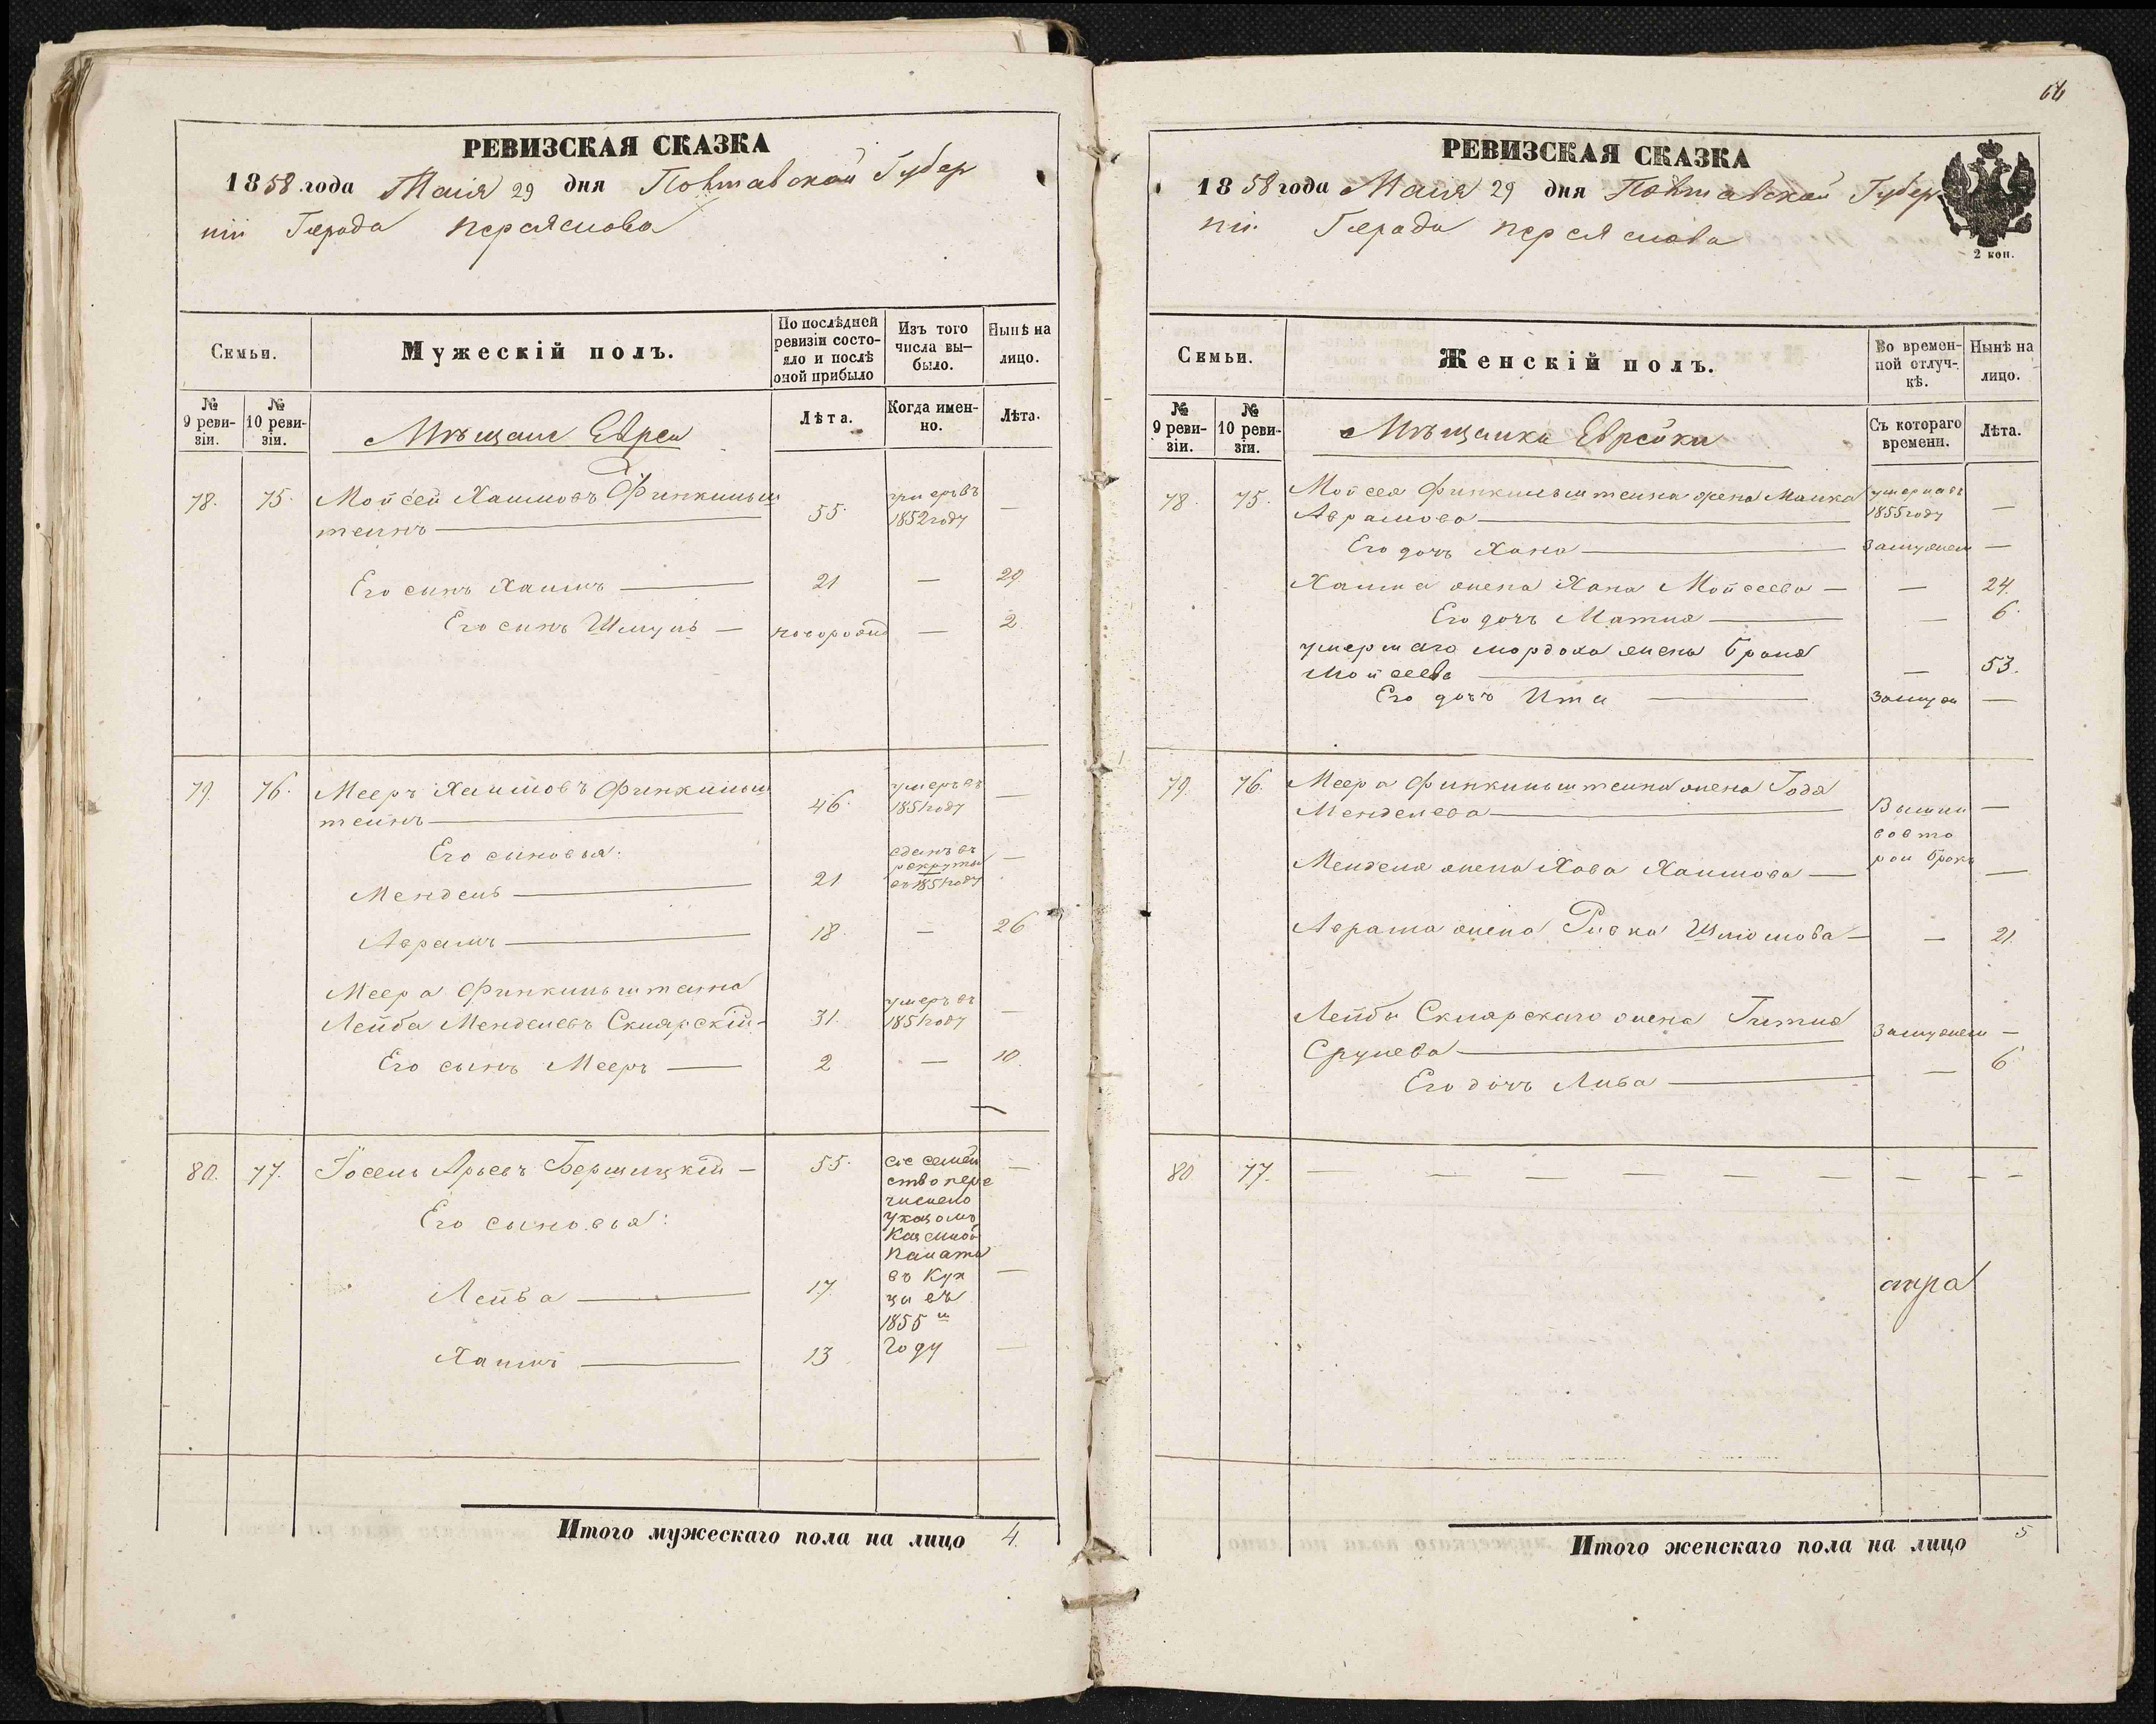 РЕВИЗСКАЯ СКАЗКА
1858 года Маія 29 дня Полтавской Губер
ніи Города Переяслова
Семьи.
Мужескій полъ.
По послѣдней ревизіи состо-
яло и послѣ
оной прибыло
Изъ того
числа вы-
было.
Нынѣ на
лицо.
№
9 реви-
зіи.
№
10 реви-
зіи.
Мѣщане Евреи
Лѣта.
Когда имен-
но.
Лѣта.
78. 75. Мойсей Хаимовъ Финкильш
теинъ — 55. умеръ въ
1852 году —
Его сынъ Хаимъ — 21 — 29
Его сынъ Шмуль — новорожд — 2.
79. 76. Мееръ Хаимовъ Финкильш
теинъ — 46. умеръ въ
1851 году —
Его сыновья:
Мендель — 21 сданъ въ
рекруты
въ 1851 году —
Аврамъ — 18. — 26
Меера Финкильштеина
Лейба Менделевъ Склярскій — 31. умеръ въ
1851 году —
Его сынъ Мееръ — 2 — 10.
80. 77. Іосель Арьевъ Бершицкій — 55. сіе семей
ство пере
числено
указомъ
Казенной
Палаты
въ Куп
цы въ
1855 м
году —
Его сыновья:
Лейба — 17. —
Хаимъ — 13 —
Итого мужескаго пола на лицо 4.
66
РЕВИЗСКАЯ СКАЗКА
1858 года Маія 29 дня Полтавской Губер
ніи Города Переяслова
2 коп.
Семьи.
Женскій полъ.
Во времен-
ной отлуч-
кѣ.
Нынѣ на
лицо.
№
9 реви-
зіи.
№
10 реви-
зіи.
Мѣщанки Еврейки
Съ котораго
времени.
Лѣта.
78. 75. Мойсея Финкильштеина жена Малка
Аврамова — умерла въ
1855 году —
Его дочъ Хана — Замужем —
Хаима жена Хана Мойсеева — — 24.
Его дочъ Матля — — 6.
умершаго Мордоха жена Браня
Мойсеева — — 53.
Его дочъ Ита — Замуж —
79. 76. Меера Финкильштеина жена Годя
Менделева — Вышли
во вто
рой бракъ —
Менделя жена Хава Хаимова — —
Аврама жена Ривка Шлиомова — — 21.
Лейбы Склярскаго жена Гитля
Срулева — Замужем —
Его дочъ Либа — — 6
80 77. — — — — — — — — —
Итого женскаго пола на лицо 5